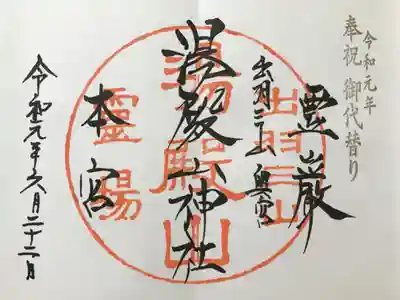 令和元年
奉祝 御代替り
霊厳
出羽三山 奥宮
湯殿山神社
本宮
令和元年六月二十二日
出羽三山
湯殿山
靈場